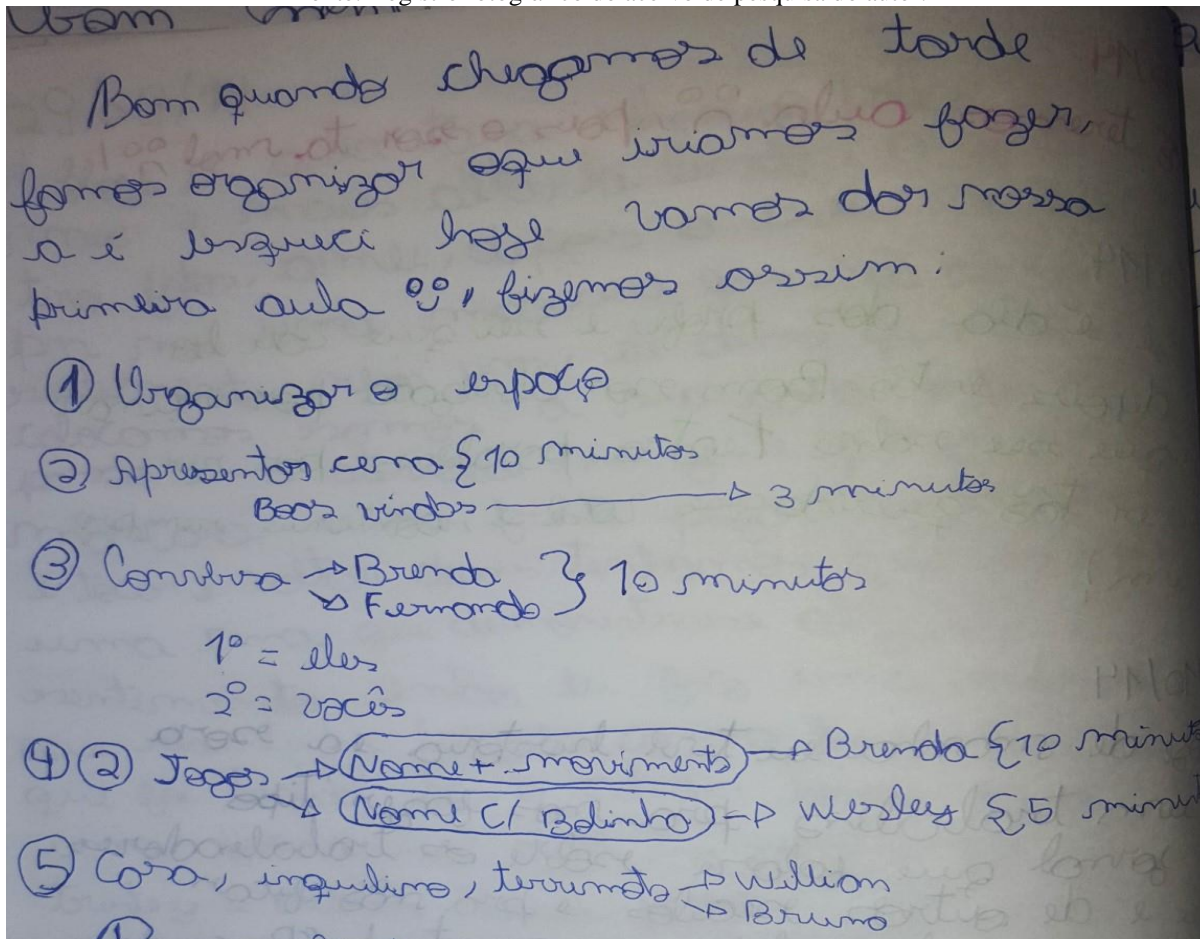 Bom quando chegamos de tarde
fomos organizar oque iriamos fazer,
a é esqueci hoje vamos dar nossa
primeira aula, fizemos assim:
① Organizar o espaço
② Apresentar cena { 10 minutos
Boas vindas → 3 minutos
③ Conversa → Brenda } 10 minutos
→ Fernando
1º = eles
2º = vocês
④ ② Jogos → Nome + movimento → Brenda { 10 minut
→ Nome c/ Bolinha → Wesley { 5 minu
⑤ Casa, inquilino, terremoto → Willian
→ Bruno